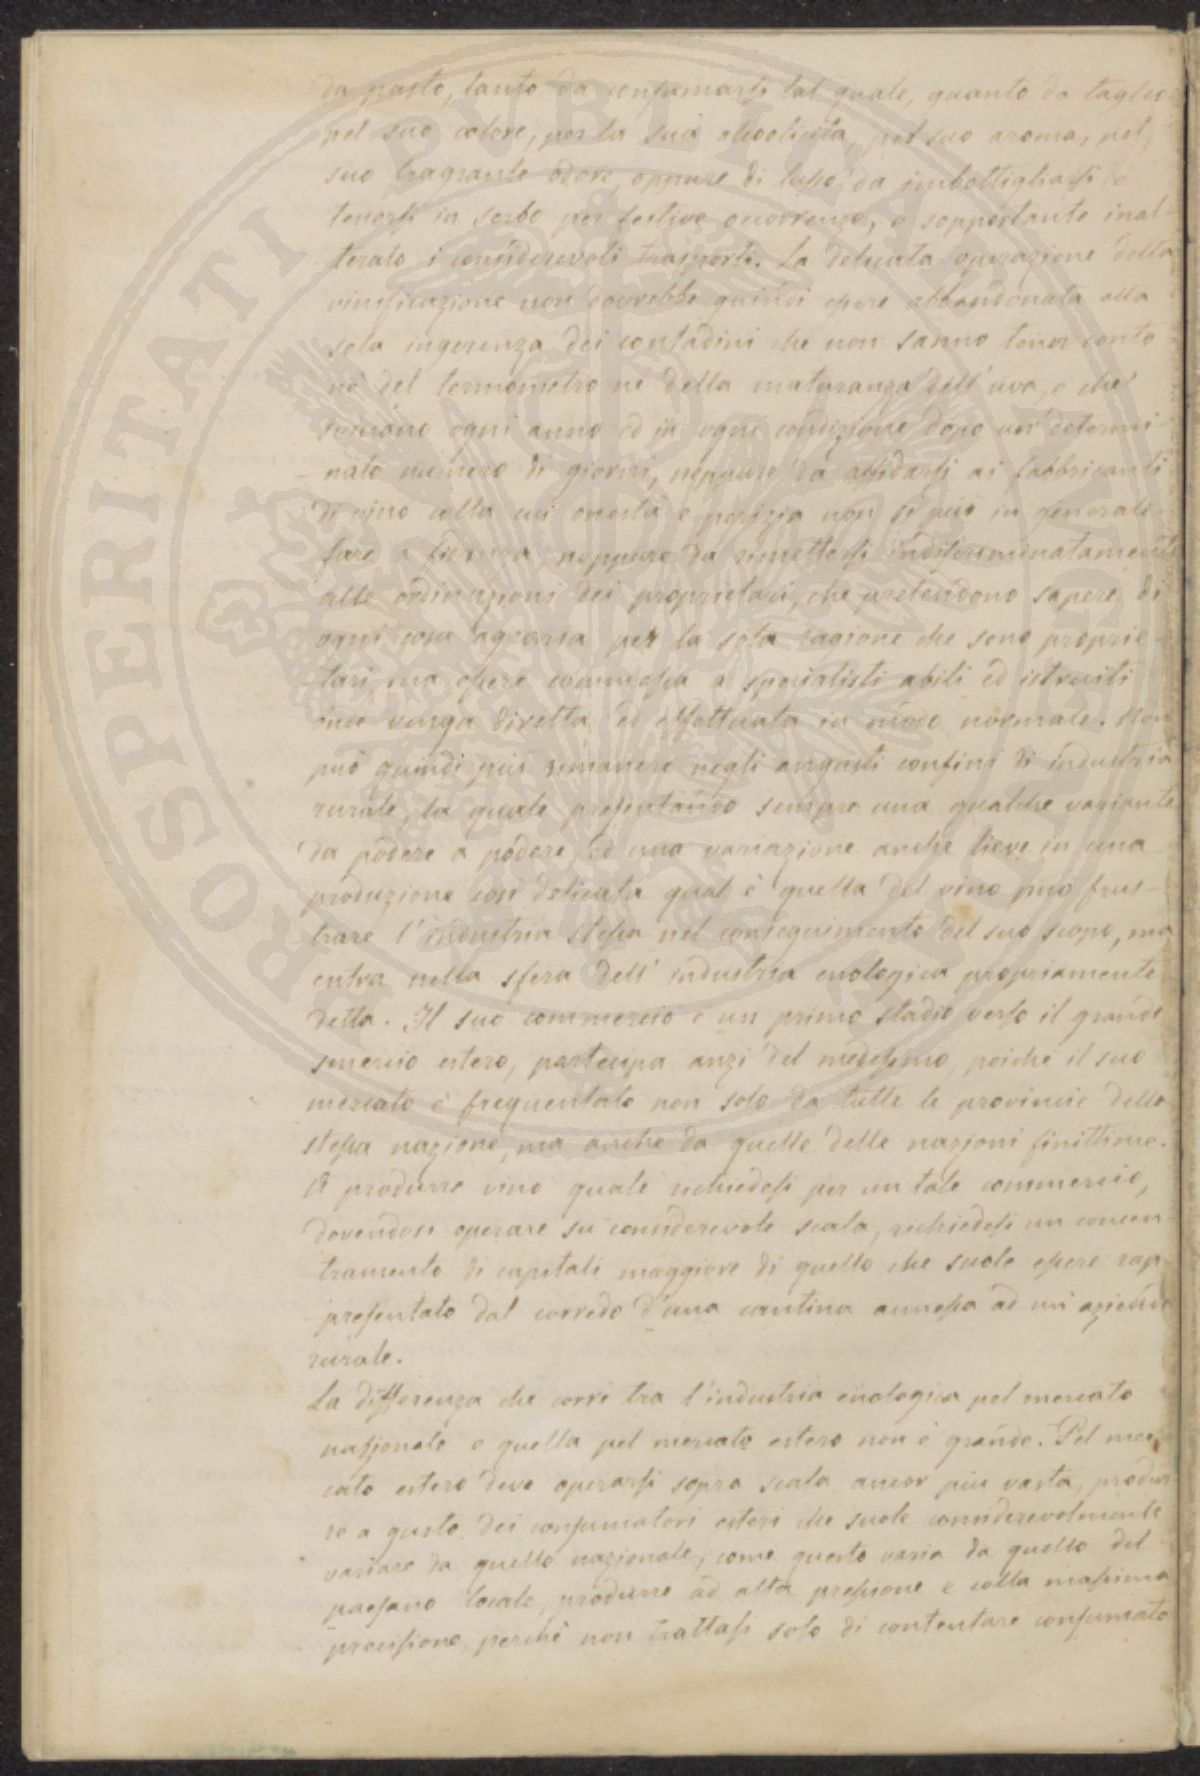 da pasto, tanto da consumarsi tal quale, quanto da taglio
pel suo colore, per la sua alcoolicità, pel suo aroma, pel
suo fragrante odore, oppure di lusso, da imbottigliarsi e
tenersi in serbo per festive occorrenze, e sopportante inal-
-terato i considerevoli trasporti. La delicata operazione della
vinificazione non dovrebbe quindi essere abbandonata alla
sola ingerenza dei contadini che non sanno tener conto
nè del termometro nè della maturanza dell'uva, e che
svinano ogni anno ed in ogni condizione dopo un determi-
-nato numero di giorni, neppure da affidarsi ai fabbricanti
di vino colla cui onestà e perizia non si può in generale
fare a fidanza, neppure da rimettersi indiscriminatamente
alle ordinazioni dei proprietari, che pretendono sapere di
ogni cosa agraria per la sola ragione che sono proprie-
-tari, ma essere commessa a specialisti abili ed istruiti
onde venga diretta ed effettuata in modo normale. Non
può quindi più rimanere negli angusti confini di industria
rurale, la quale presentando sempre una qualche variante
da podere a podere, ed una variazione anche lieve in una
produzione così delicata qual è quella del vino può frus-
-trare l'industria stessa nel conseguimento del suo scopo, ma
entra nella sfera dell'industria enologica propriamente
detta. Il suo commercio è un primo stadio verso il grande
smercio estero, partecipa anzi del medesimo, poichè il suo
mercato è frequentato non solo da tutte le provincie della
stessa nazione, ma anche da quelle delle nazioni finittime.
A produrre vino quale richiedesi per un tale commercio,
dovendosi operare su considerevole scala, richiedesi un concen-
-tramento di capitali maggiore di quello che suole essere rap-
-presentato dal corredo d'una cantina annessa ad un'azienda
rurale.
La differenza che corre tra l'industria enologica pel mercato
nazionale e quella pel mercato estero non è grande. Pel mer-
cato estero deve operarsi sopra scala ancor più vasta, produr-
re a gusto dei consumatori esteri che suole considerevolmente
variare da quello nazionale, come questo varia da quello del
paesano locale, produrre ad alta pressione e colla massima
precisione, perchè non trattasi solo di contentare consumato
PROSPERITATI PVBLICAE AVGENDAE